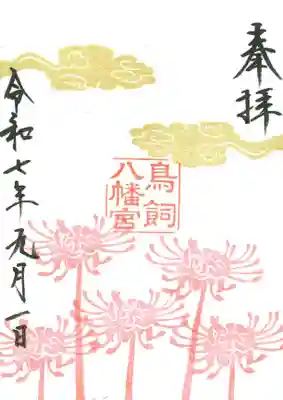 奉拝
鳥飼
八幡宮
令和七年九月一日